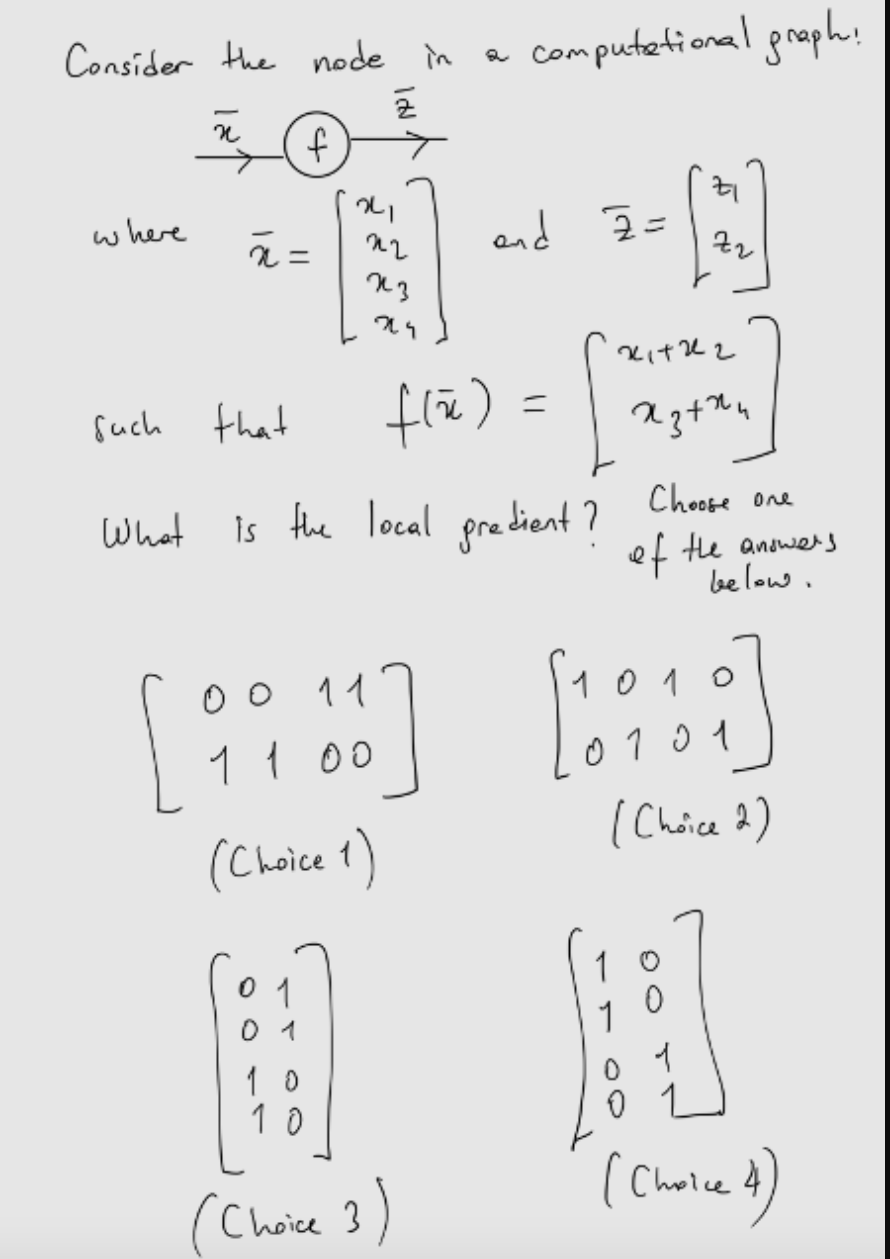 Consider the node in a computational graph:
x̄ f z̄
where x̄ = [x1 x2 x3 x4] and z̄ = [z1 z2]
such that f(x̄) = [x1+x2 x3+x4]
What is the local gradient? Choose one
of the answers
below.
0 0 1 1
1 1 0 0
(Choice 1)
1 0 1 0
0 1 0 1
(Choice 2)
0 1
0 1
1 0
1 0
(Choice 3)
1 0
1 0
0 1
0 1
(Choice 4)